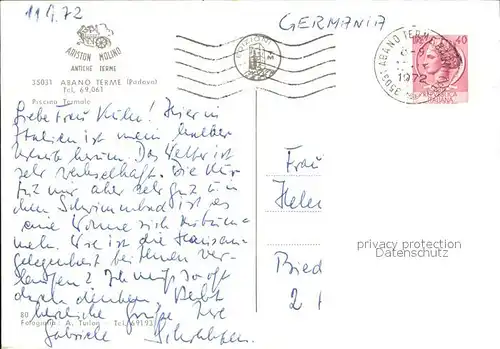 11.9.72
GERMANIA
ARISTON MOLINO
ANTICHE TERME
35031 ABANO TERME (Padova)
Tel. 69.061
Piscina Termale
35031 ABANO TERME
1972
40
ITALIANA
Liebe Frau Kühn! Hier in
Italien ist mein halber
Urlaub herum. Das Wetter ist
sehr wechselhaft. Die Kur
tut mir aber sehr gut u. in
dem Schwimmbad ist es
eine Wonne sich
Wie ist die
gelegenheit bei Ihnen ver-
laufen? Ich muß so oft
daran denken. Recht
herzliche Grüße Ihre
Gabriele
Frau
Helen
Bied
2
80
Fotografia: A. Turlon Tel. 69123
privacy protection
Datenschutz